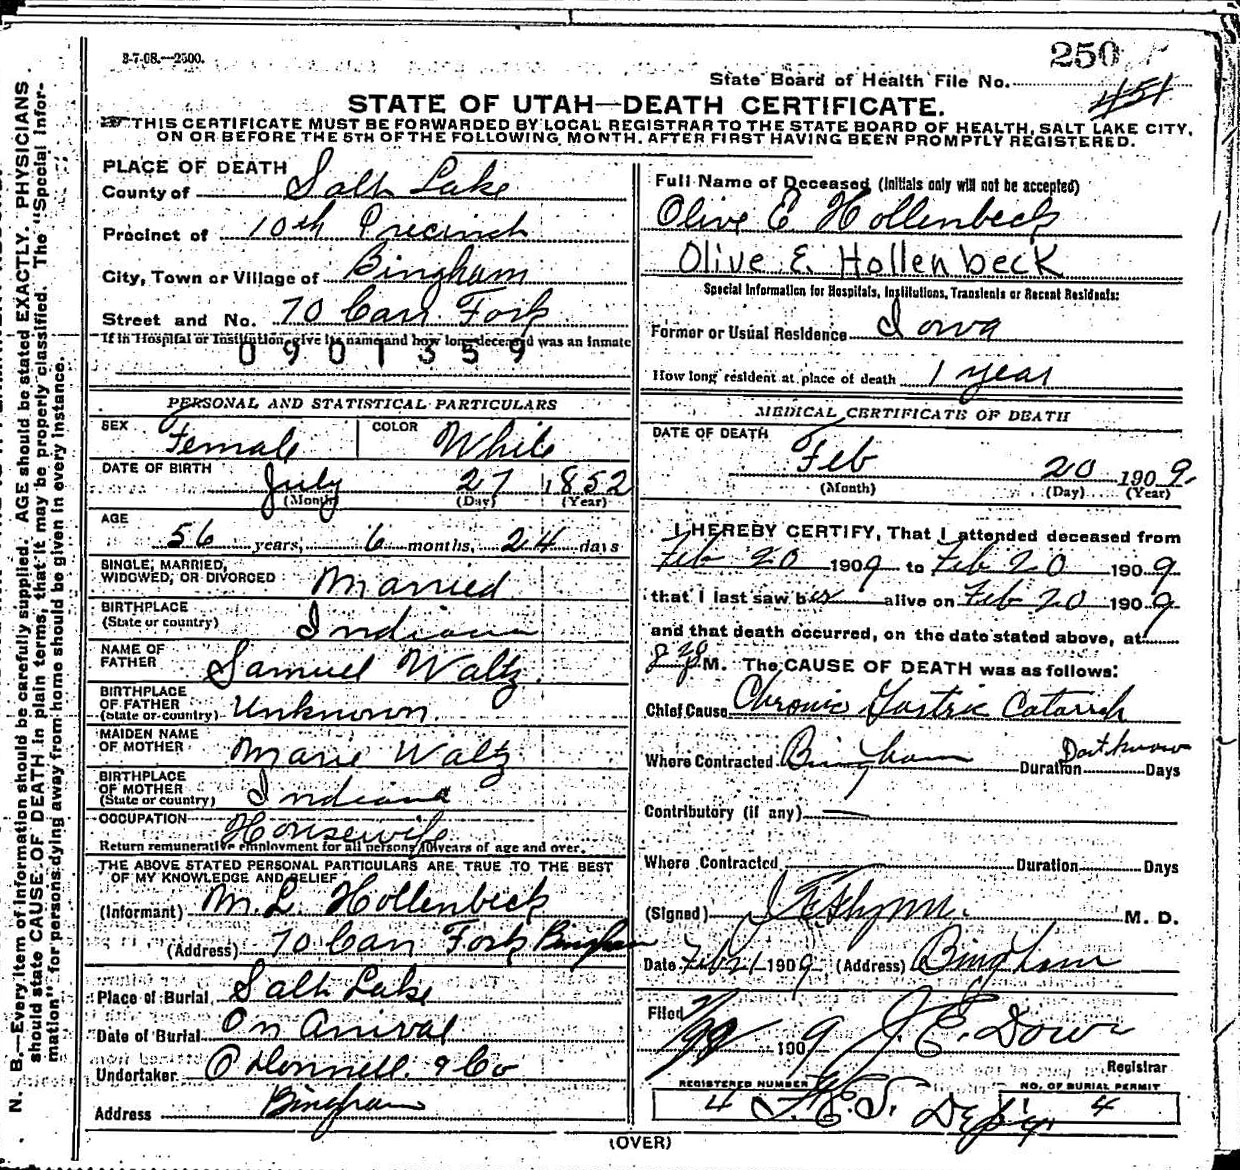 3-7-08.—2500.
250
State Board of Health File No.
451
STATE OF UTAH—DEATH CERTIFICATE.
THIS CERTIFICATE MUST BE FORWARDED BY LOCAL REGISTRAR TO THE STATE BOARD OF HEALTH, SALT LAKE CITY,
ON OR BEFORE THE 5TH OF THE FOLLOWING MONTH, AFTER FIRST HAVING BEEN PROMPTLY REGISTERED.
PLACE OF DEATH
County of Salt Lake
Precinct of 10th Precinct
City, Town or Village of Bingham
Street and No. 70 Carr Fork
If in Hospital or Institution, give its name and how long deceased was an inmate
0901359
PERSONAL AND STATISTICAL PARTICULARS
SEX Female COLOR White
DATE OF BIRTH July 27 1852
(Month) (Day) (Year)
AGE
56 years, 6 months, 24 days
SINGLE, MARRIED,
WIDOWED, OR DIVORCED Married
BIRTHPLACE
(State or country) Indiana
NAME OF
FATHER Samuel Waltz
BIRTHPLACE
OF FATHER
(State or country) Unknown.
MAIDEN NAME
OF MOTHER Marie Waltz
BIRTHPLACE
OF MOTHER
(State or country) Indiana
OCCUPATION Housewife
Return remunerative employment for all persons 10 years of age and over.
THE ABOVE STATED PERSONAL PARTICULARS ARE TRUE TO THE BEST
OF MY KNOWLEDGE AND BELIEF
(Informant) M. L. Hollenbeck
(Address) 70 Carr Fork Bingham
Place of Burial Salt Lake
Date of Burial On Arrival
Undertaker O'Donnell & Co
Address Bingham
Full Name of Deceased (Initials only will not be accepted)
Olive E Hollenbeck
Olive E Hollenbeck
Special Information for Hospitals, Institutions, Transients or Recent Residents:
Former or Usual Residence Iowa
How long resident at place of death 1 year
MEDICAL CERTIFICATE OF DEATH
DATE OF DEATH
Feb 20 1909
(Month) (Day) (Year)
I HEREBY CERTIFY, That I attended deceased from
Feb 20 1909 to Feb 20 1909
that I last saw her alive on Feb 20 1909
and that death occurred, on the date stated above, at
M. The CAUSE OF DEATH was as follows:
Chief Cause Chronic Gastric Catarrh
Where Contracted Bingham Duration Dont know Days
Contributory (if any)
Where Contracted Duration Days
(Signed) M. D.
Date Feb 21 1909 (Address) Bingham
Filed 1909 J. E. Dow
Registrar
REGISTERED NUMBER NO. OF BURIAL PERMIT
4 4
(OVER)
N. B.—Every item of information should be carefully supplied. AGE should be stated EXACTLY. PHYSICIANS
should state CAUSE OF DEATH in plain terms, that it may be properly classified. The "Special Infor-
mation" for persons dying away from home should be given in every instance.